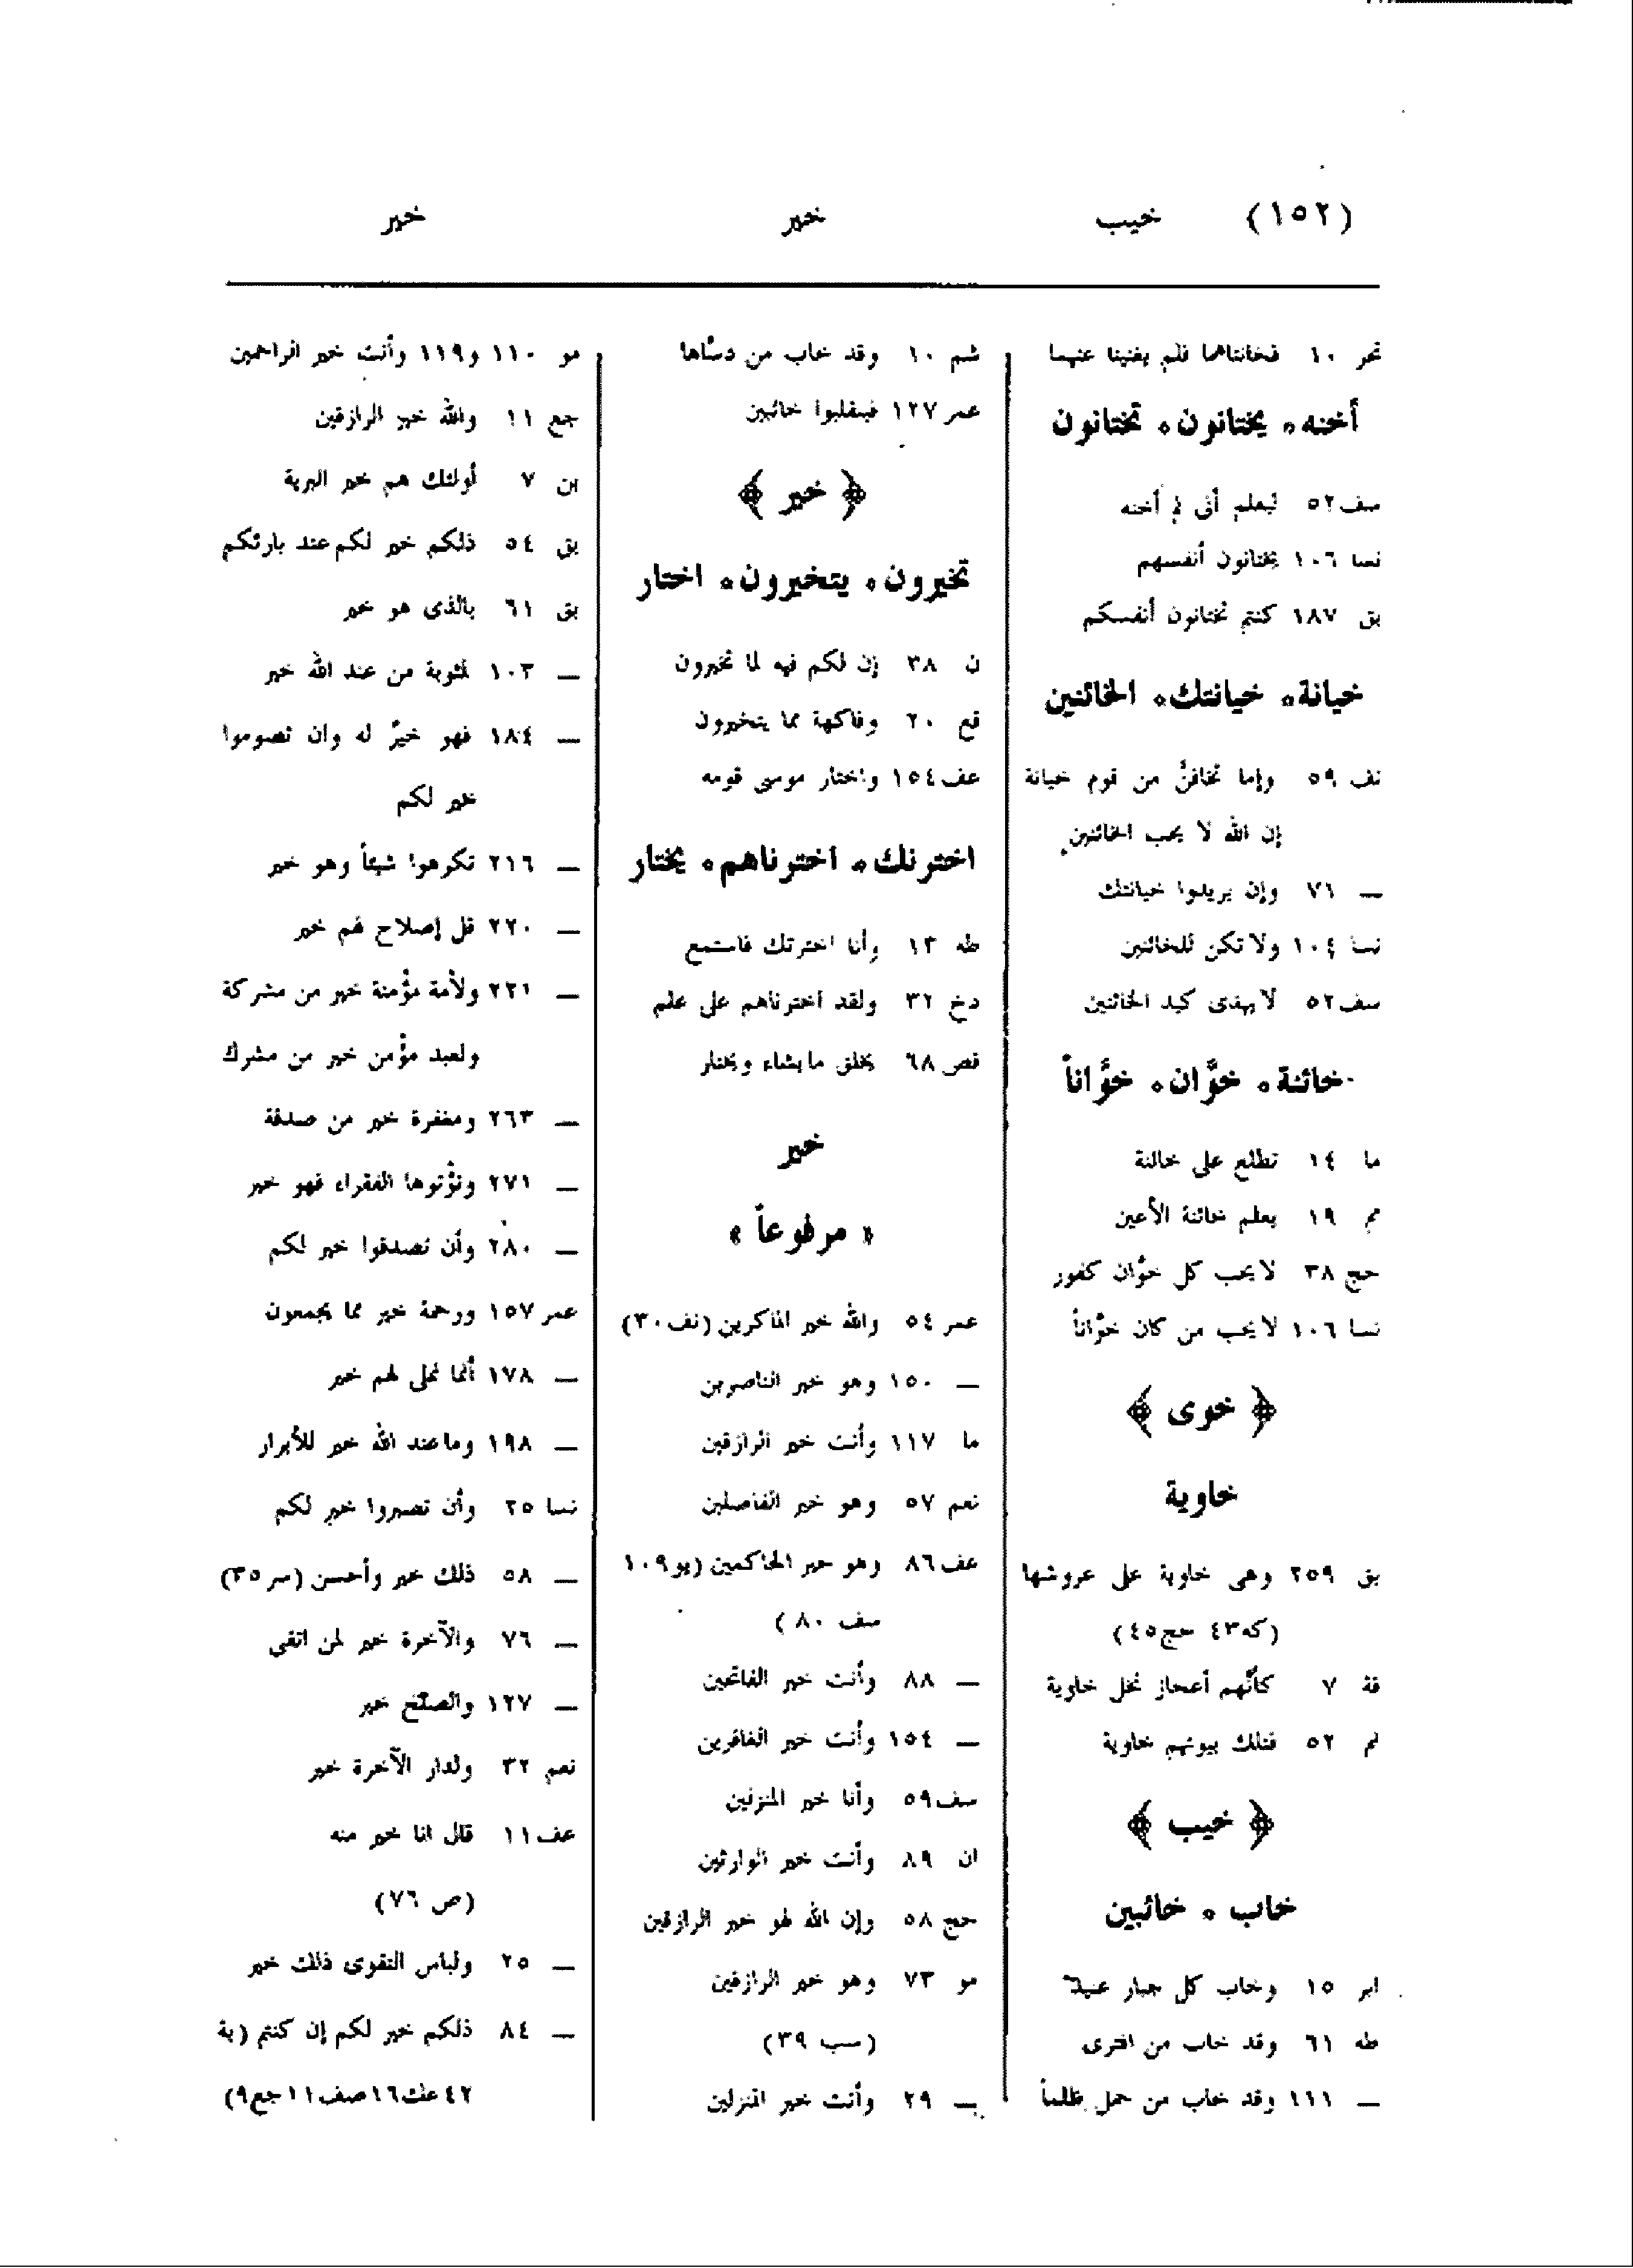 (١٥٢) خيب خير خير
تحر ١٠ فخانتاهما فلم يغنيا عنهما
أخنه ٭ يختانون ٭ تختانون
سف ٥٢ ليعلم أنى لم أخنه
نسا ١٠٦ يختانون أنفسهم
بق ١٨٧ كنتم تختانون أنفسكم
خيانة ٭ خيانتك ٭ الخائنين
نف ٥٩ وإما تخافنَّ من قوم خيانة
إن الله لا يحب الخائنين
— ٧١ وإن يريدوا خيانتك
نسا ١٠٤ ولا تكن للخائنين
سف ٥٢ لا يهدى كيد الخائنين
خائنة ٭ خوَّان ٭ خوَّاناً
ما ١٤ تطلع على خائنة
مم ١٩ يعلم خائنة الأعين
حج ٣٨ لا يحب كل خوَّان كفور
نسا ١٠٦ لا يحب من كان خوَّاناً
﴿ خوى ﴾
خاوية
بق ٢٥٩ وهى خاوية على عروشها
(كه ٤٣ حج ٤٥)
قة ٧ كأنَّهم أعجاز نخل خاوية
نم ٥٢ فتلك بيوتهم خاوية
﴿ خيب ﴾
خاب ٭ خائبين
ابر ١٥ وخاب كل جبار عنيد
طه ٦١ وقد خاب من افترى
— ١١١ وقد خاب من حمل ظلماً
شم ١٠ وقد خاب من دسَّاها
عمر ١٢٧ فينقلبوا خائبين
﴿ خير ﴾
تخيرون ٭ يتخيرون ٭ اختار
ن ٣٨ إن لكم فيه لما تخيرون
قع ٢٠ وفاكهة مما يتخيرون
عف ١٥٤ واختار موسى قومه
اخترتك ٭ اخترناهم ٭ يختار
طه ١٣ وأنا اخترتك فاستمع
دخ ٣٢ ولقد اخترناهم على علم
قص ٦٨ يخلق ما يشاء ويختار
خير
« مرفوعاً »
عمر ٥٤ والله خير الماكرين (نف ٣٠)
— ١٥٠ وهو خير الناصرين
ما ١١٧ وأنت خير الرازقين
نعم ٥٧ وهو خير الفاصلين
عف ٨٦ وهو خير الحاكمين (يو ١٠٩
سف ٨٠)
— ٨٨ وأنت خير الفاتحين
— ١٥٤ وأنت خير الغافرين
سف ٥٩ وأنا خير المنزلين
ان ٨٩ وأنت خير الوارثين
حج ٥٨ وإن الله لهو خير الرازقين
مو ٧٣ وهو خير الرازقين
(سب ٣٩)
— ٢٩ وأنت خير المنزلين
مو ١١٠ و١١٩ وأنت خير الراحمين
جع ١١ والله خير الرازقين
بن ٧ أولئك هم خير البرية
بق ٥٤ ذلكم خير لكم عند بارئكم
بق ٦١ بالذى هو خير
— ١٠٣ لمثوبة من عند الله خير
— ١٨٤ فهو خيرٌ له وان تصوموا
خير لكم
— ٢١٦ تكرهوا شيئاً وهو خير
— ٢٢٠ قل إصلاح لهم خير
— ٢٢١ ولأمة مؤْمنة خير من مشركة
ولعبد مؤْمن خير من مشرك
— ٢٦٣ ومغفرة خير من صدقة
— ٢٧١ وتؤْتوها الفقراء فهو خير
— ٢٨٠ وأن تصدقوا خير لكم
عمر ١٥٧ ورحمة خير مما يجمعون
— ١٧٨ أنَّما نملى لهم خير
— ١٩٨ وما عند الله خير للأبرار
نسا ٢٥ وأن تصبروا خير لكم
— ٥٨ ذلك خير وأحسن (سر ٣٥)
— ٧٦ والآخرة خير لمن اتقى
— ١٢٧ والصلح خير
نعم ٣٢ ولدار الآخرة خير
عف ١١ قال انا خير منه
(ص ٧٦)
— ٢٥ ولباس التقوى ذلك خير
— ٨٤ ذلكم خير لكم إن كنتم (بة
٤٢ عنك ١٦ صف ١١ جع ٩)